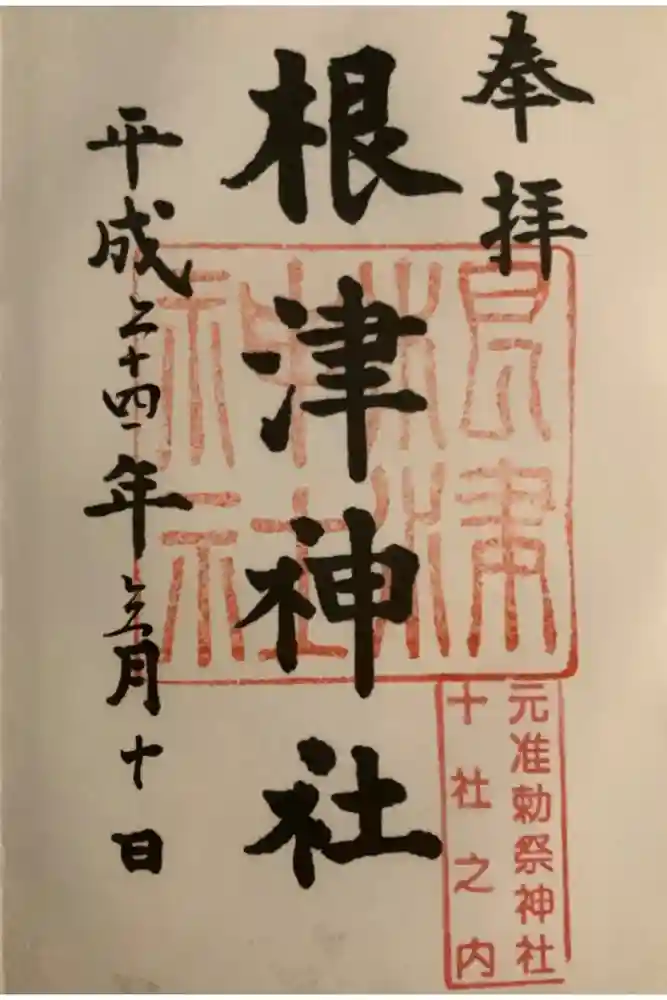 奉拝
根津神社
根津神社
元准勅祭神社
十社之内
平成二十四年三月十日